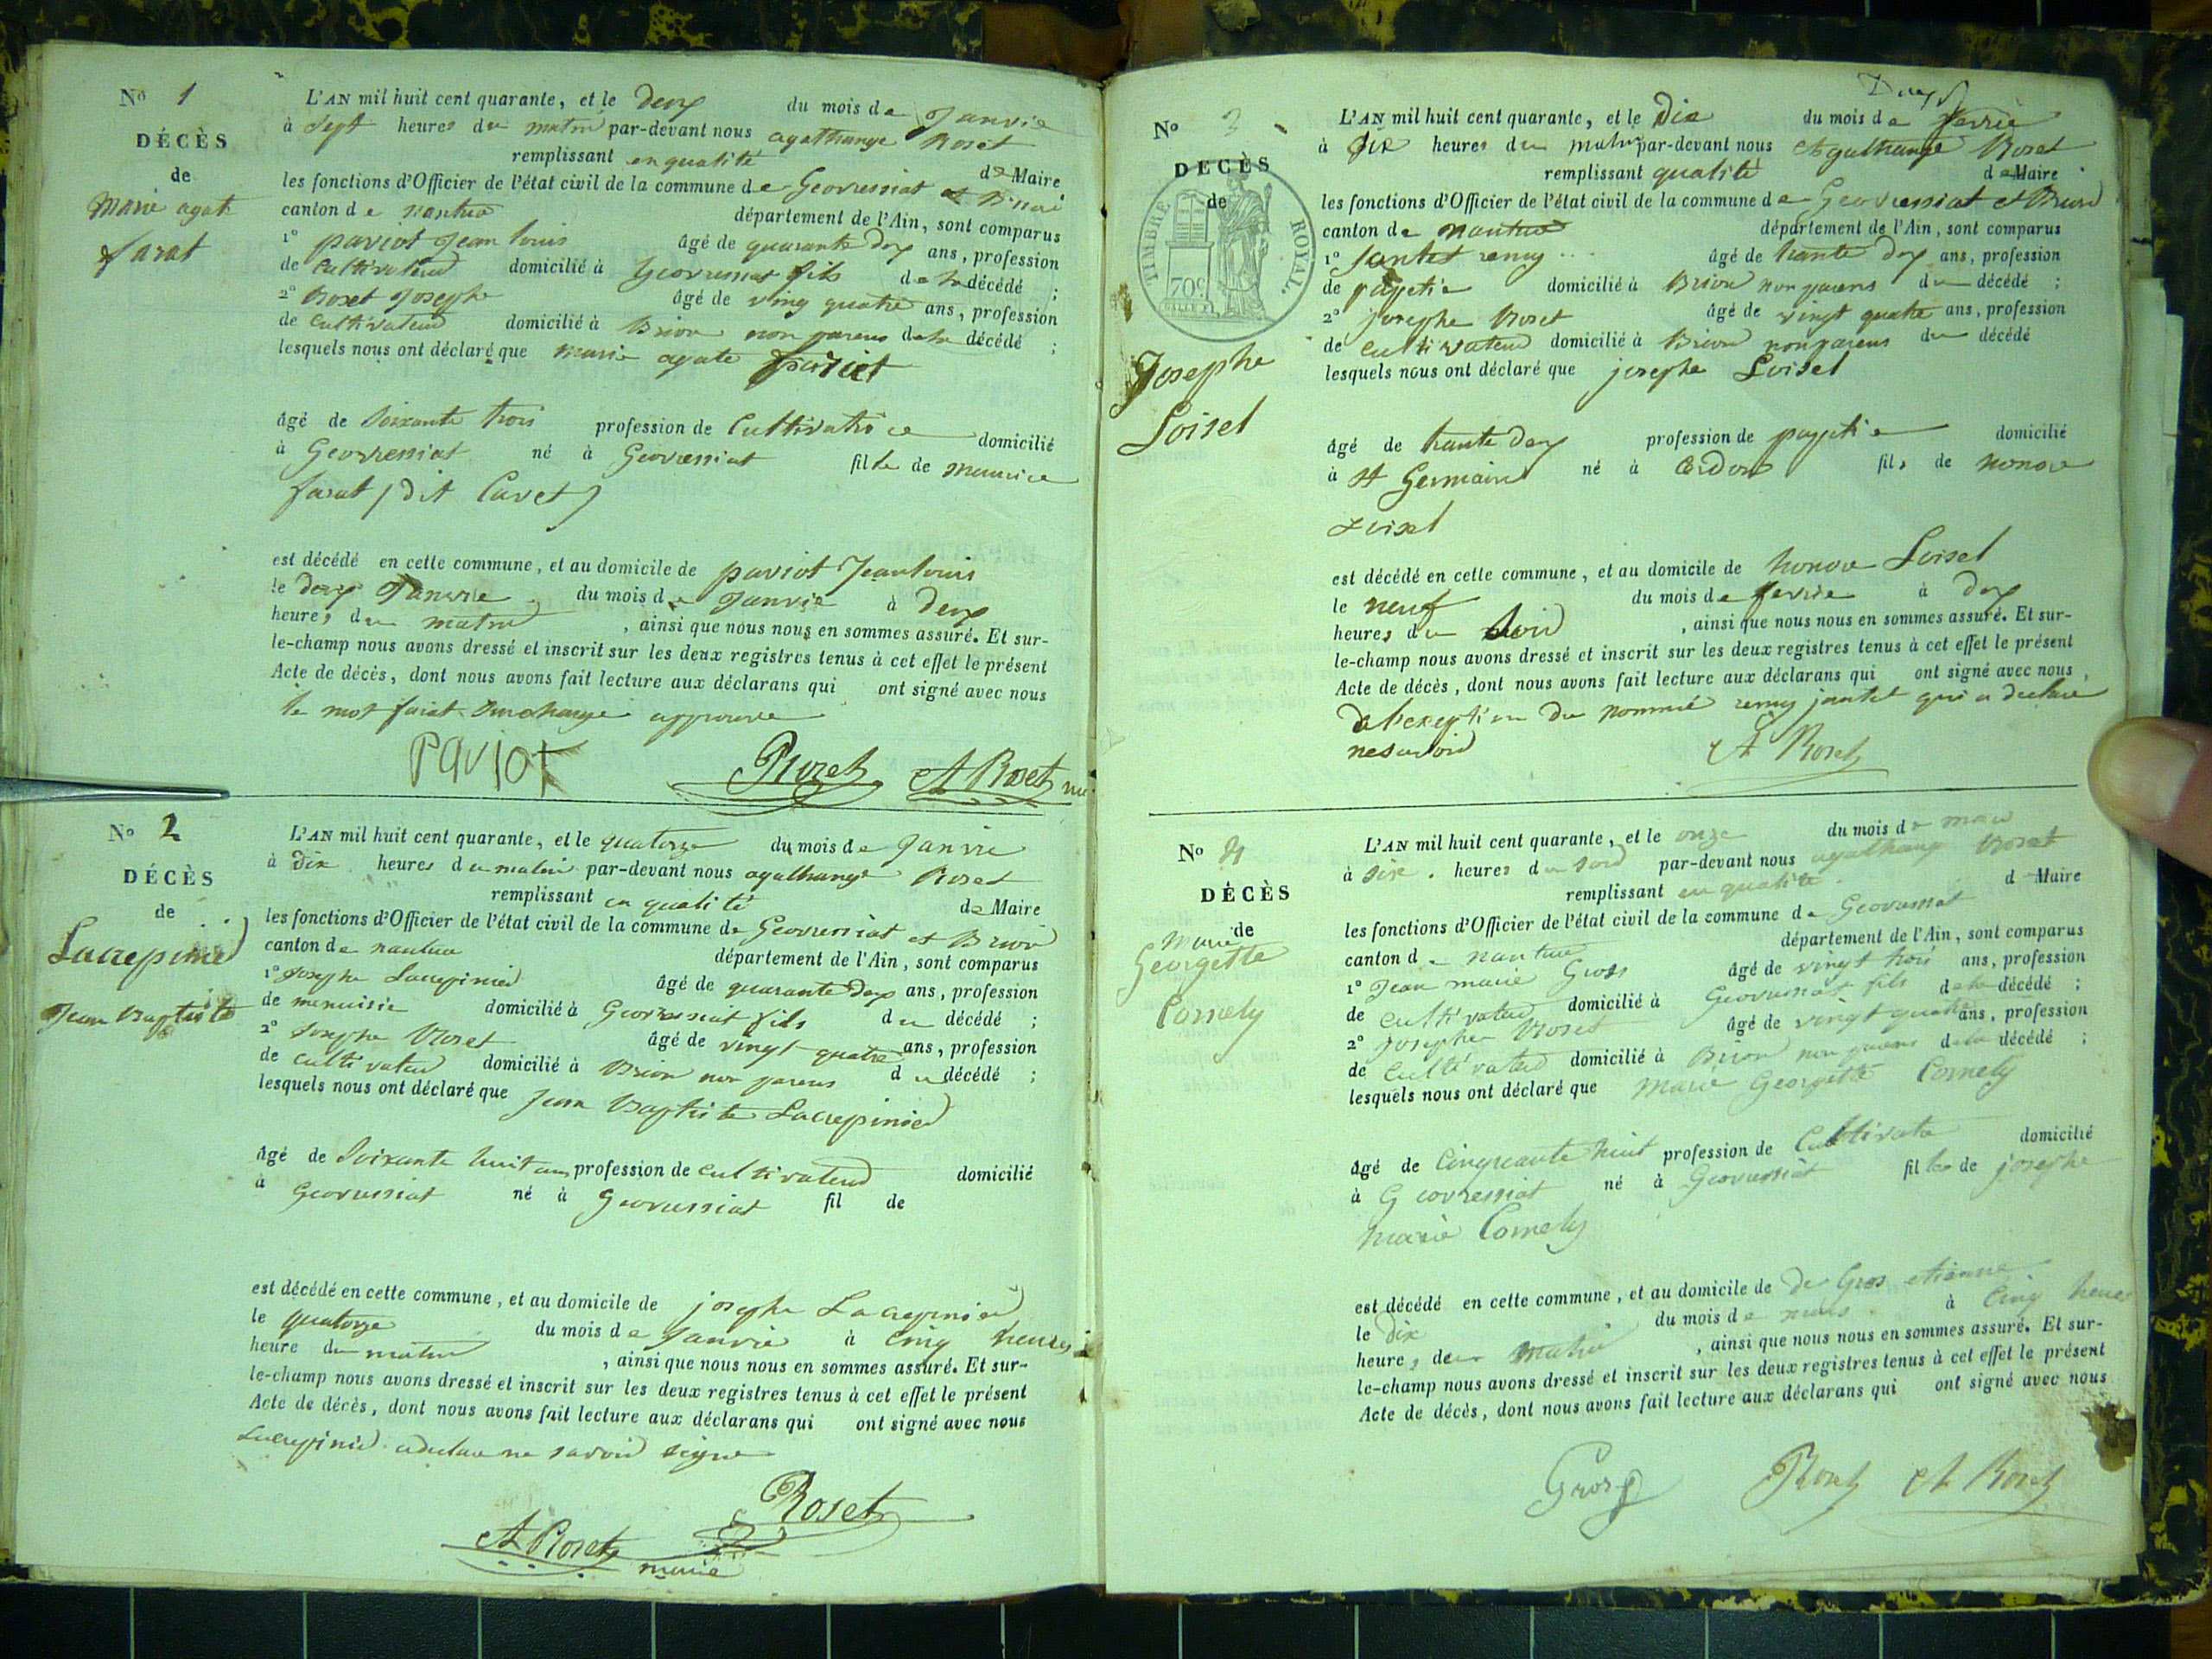 No 1
DÉCÈS
de
Marie agate
farat
L'AN mil huit cent quarante, et le deux du mois de Janvie
à Sept heures du matin par-devant nous agathange Roset
remplissant en qualité de Maire
les fonctions d'Officier de l'état civil de la commune de Geovressiat et Brion
canton de nantua département de l'Ain, sont comparus
1° paviot Jean louis âgé de quarante deux ans, profession
de Cultivateur domicilié à Geovressiat fils de la décédé ;
2° Roset Josephe âgé de ving quatre ans, profession
de Cultivateur domicilié à Brion non parens de la décédé ;
lesquels nous ont déclaré que marie agate
âgé de Soixante trois profession de Cultivatrice domicilié
à Geovressiat né à Geovressiat fille de maurice
farat (dit Cavet)
est décédé en cette commune, et au domicile de paviot Jean louis
le deux Janvie du mois de Janvie à deux
heures du matin , ainsi que nous nous en sommes assuré. Et sur-
le-champ nous avons dressé et inscrit sur les deux registres tenus à cet effet le présent
Acte de décès, dont nous avons fait lecture aux déclarans qui ont signé avec nous
le mot farat Surcharge approuve
PAVIOT Roset A Roset
No 2
DÉCÈS
de
Lacrepinier
Jean Baptiste
L'AN mil huit cent quarante, et le quatorze du mois de Janvie
à dix heures du matin par-devant nous agathange Roset
remplissant en qualité de Maire
les fonctions d'Officier de l'état civil de la commune de Geovressiat et Brion
canton de nantua département de l'Ain, sont comparus
1° Josephe Lacrepinier âgé de quarante deux ans, profession
de menuisie domicilié à Geovressiat fils du décédé ;
2° Josephe Roset âgé de vingt quatre ans, profession
de cultivateur domicilié à Brion non parens du décédé ;
lesquels nous ont déclaré que Jean Baptiste Lacrepinier
âgé de Soixante huit ans profession de cultivateur domicilié
à Geovressiat né à Geovressiat fil de
est décédé en cette commune, et au domicile de josephe Lacrepinier
le quatorze du mois de Janvie à cinq heures
heure du matin , ainsi que nous nous en sommes assuré. Et sur-
le-champ nous avons dressé et inscrit sur les deux registres tenus à cet effet le présent
Acte de décès, dont nous avons fait lecture aux déclarans qui ont signé avec nous
Lacrepinier a declare ne savoir signe
Roset
A Roset
maire
No 3
DÉCÈS
de
TIMBRE ROYAL.
70c
Josephe
Loisel
L'AN mil huit cent quarante, et le Dix du mois de fevrie
à dix heures du matin par-devant nous Agathange Roset
remplissant qualité de Maire
les fonctions d'Officier de l'état civil de la commune de Geovressiat et Brion
canton de nantua département de l'Ain, sont comparus
1° Jantet remy âgé de trante deux ans, profession
de papetie domicilié à Brion non parens du décédé ;
2° josephe Roset âgé de vingt quatre ans, profession
de cultivateur domicilié à Brion non parens du décédé
lesquels nous ont déclaré que josephe Loisel
âgé de trante deux profession de papetie domicilié
à St Germain né à Cerdon fils de honore
Loisel
est décédé en cette commune, et au domicile de honore Loisel
le neuf du mois de fevrie à deux
heures du soir , ainsi que nous nous en sommes assuré. Et sur-
le-champ nous avons dressé et inscrit sur les deux registres tenus à cet effet le présent
Acte de décès, dont nous avons fait lecture aux déclarans qui ont signé avec nous,
a l'exeption du nommé remy jantet qui a declare
ne savoir A Roset
No 4
DÉCÈS
de
Marie
Georgette
Cornely
L'AN mil huit cent quarante, et le onze du mois de mars
à six heures du soir par-devant nous agathange Roset
remplissant en qualité d Maire
les fonctions d'Officier de l'état civil de la commune de Geovressiat
canton de nantua département de l'Ain, sont comparus
1° Jean marie Gros âgé de vingt trois ans, profession
de cultivateur domicilié à Geovressiat fils de la décédé ;
2° Josephe Roset âgé de vingt quatre ans, profession
de Cultivateur domicilié à Brion non parens de la décédé ;
lesquels nous ont déclaré que Marie Georgette Cornely
âgé de Cinqueante huit profession de Cultivate domicilié
à Geovressiat né à Geovressiat fille de josephe
marie Cornely
est décédé en cette commune, et au domicile de de Gros etienne
le dix du mois de mars à Cinq heures
heures de matin , ainsi que nous nous en sommes assuré. Et sur-
le-champ nous avons dressé et inscrit sur les deux registres tenus à cet effet le présent
Acte de décès, dont nous avons fait lecture aux déclarans qui ont signé avec nous
Gros Roset A Roset